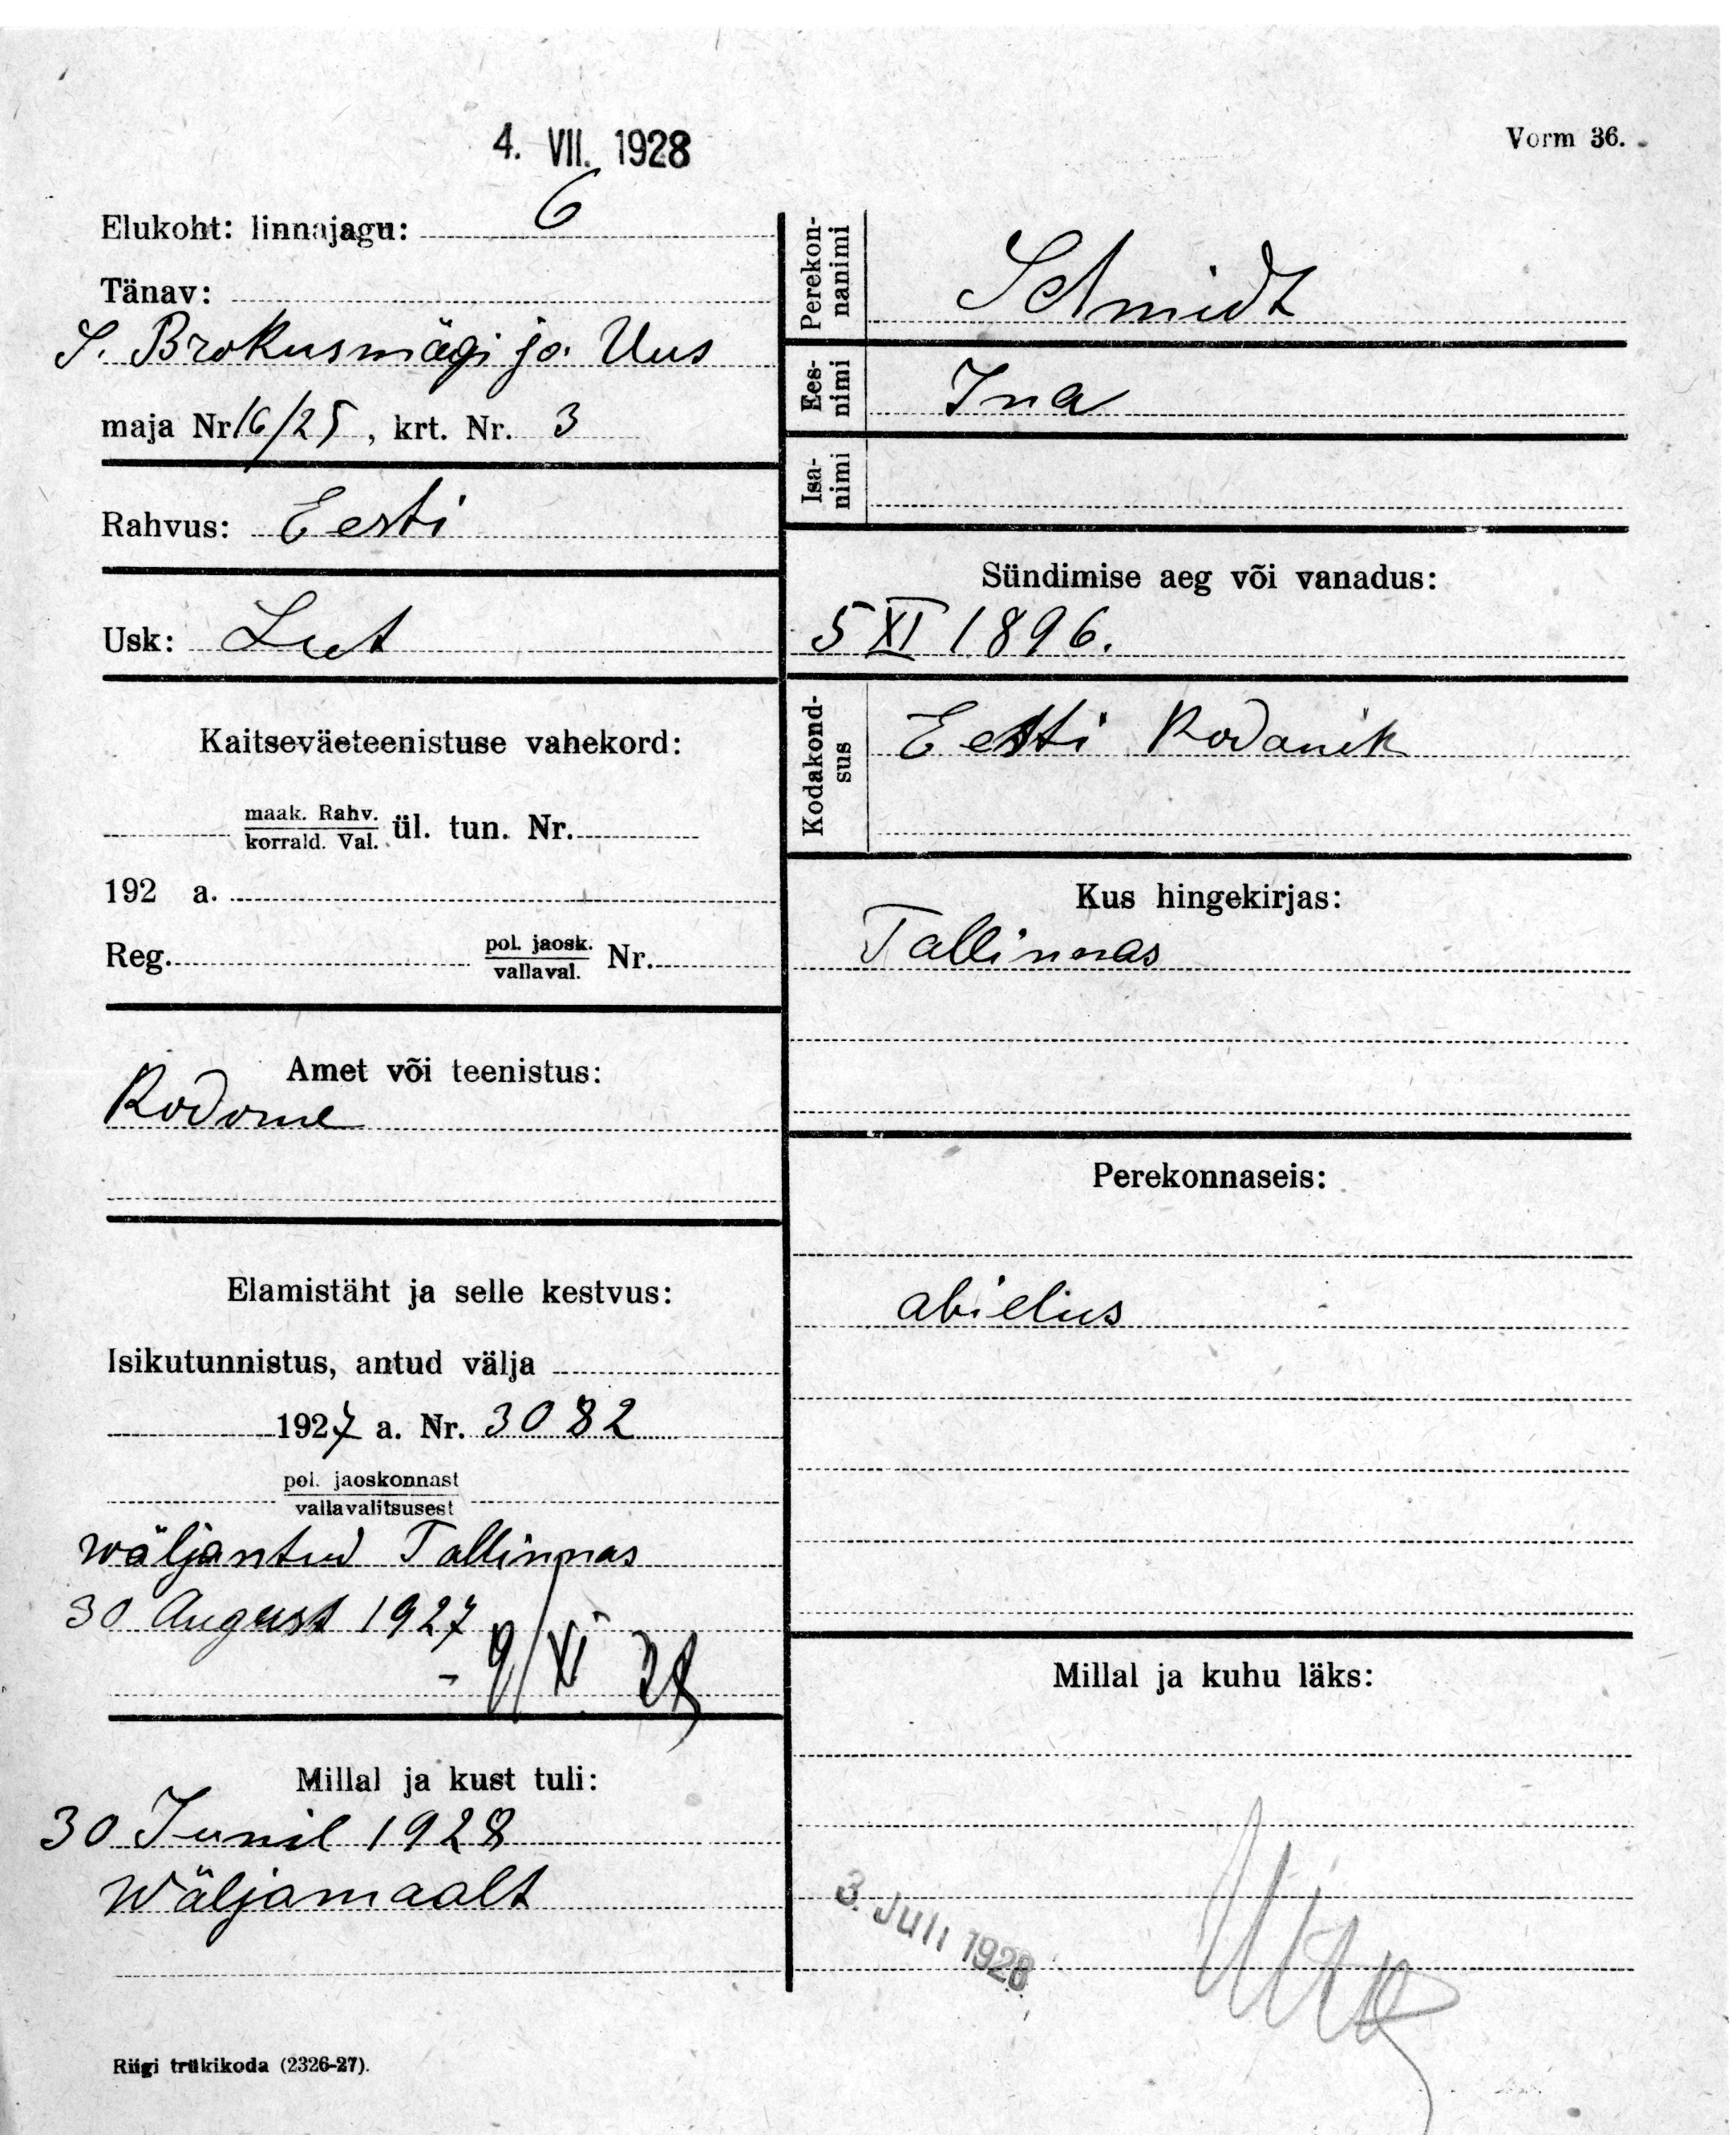 4. VII. 1928
Vorm 36.
Elukoht: linnajagu: 6
Tänav:
S. Brokusmägi ja Uus
maja Nr 16/25, krt. Nr. 3
Rahvus: Eesti
Usk: Lut
Kaitseväeteenistuse vahekord:
maak. Rahv.
korrald. Val. ül. tun. Nr.
192 a.
Reg. pol. jaosk. Nr.
vallaval.
Amet või teenistus:
Kodome
Elamistäht ja selle kestvus:
Isikutunnistus, antud välja
1927 a. Nr. 3082
pol. jaoskonnast
vallavalitsusest
wäljantud Tallinnas
30 August 1927
- 9/XI 28
Millal ja kust tuli:
30 Junil 1928
Wäljamaalt
Riigi trükikoda (2326-27).
Perekonnanimi
Schmidt
Eesnimi
Ina
Isanimi
Sündimise aeg või vanadus:
5 XI 1896.
Kodakondsus
Eesti Kodanik
Kus hingekirjas:
Tallinnas
Perekonnaseis:
abielus
Millal ja kuhu läks:
3. Juli 1928